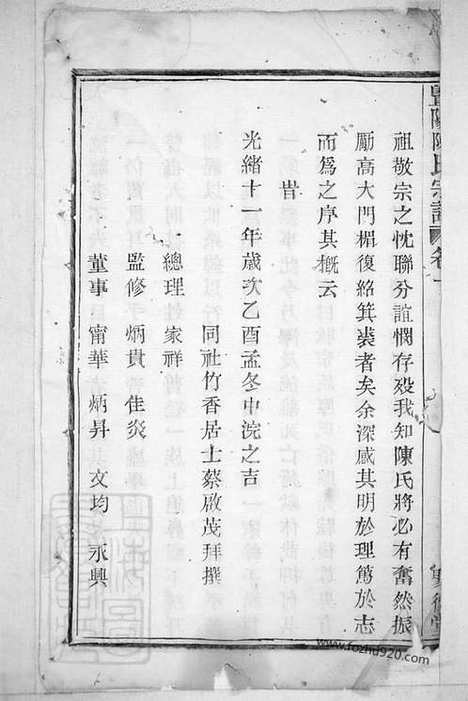 暨陽陳氏宗譜 卷一
祖敬宗之忱聯分誼憫存殁我知陳氏將必有奮然振
勵高大門楣復紹箕裘者矣余深感其明於理篤於志
而爲之序其概云
旹
光緒十一年歲次乙酉孟冬中浣之吉
同社竹香居士蔡啟茂拜撰
總理 家祥
監修 炳貴 佳炎
董事 甯華 炳昇 文均 永興
www.fozhu920.com